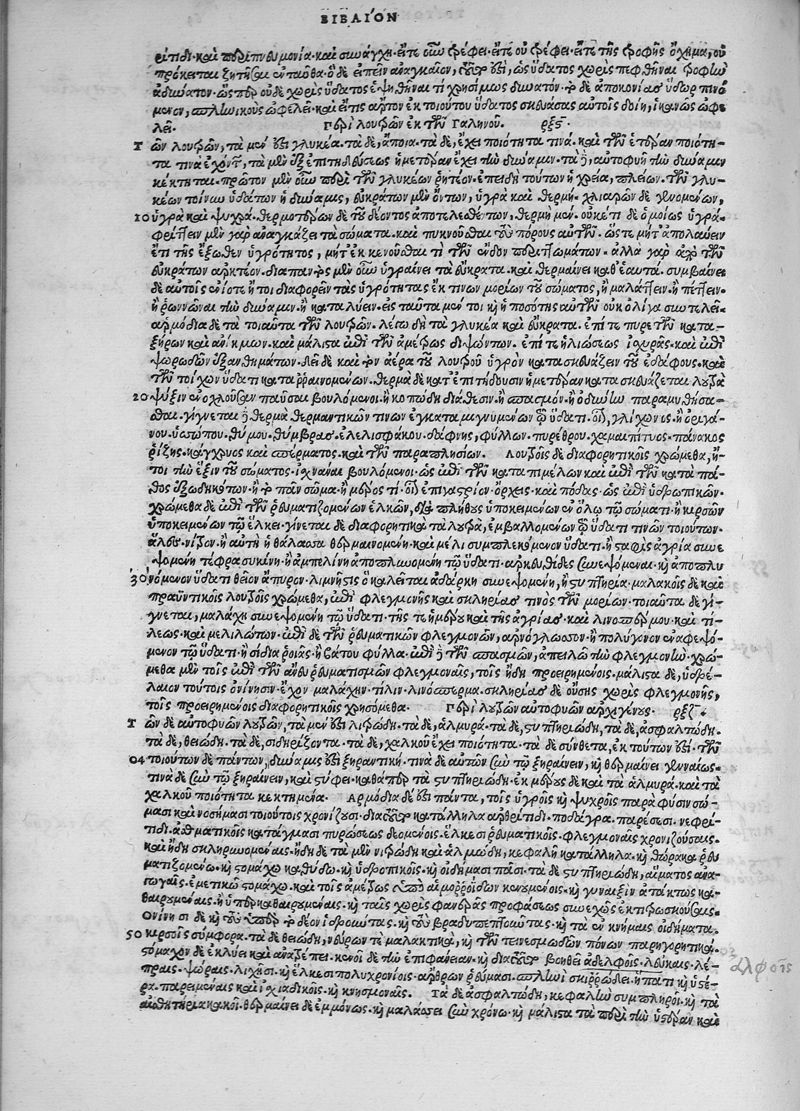 ΒΙΒΛΙΟΝ
ρίτιδι· καὶ περιπνευμονία· καὶ συνάγχη· εἴτε οὖν τρέφει· εἴτε οὐ τρέφει· εἴτε τῆς τροφῆς ὄχημα, οὐ
πρόκειται ζητῆσαι ἐνταῦθα· ὃ δὲ εἰπεῖν ἀναγκαῖον, τοῦτό ἐστιν, ὡς ὕδατος χωρὶς πεφθῆναι τροφὴν
ἀδύνατον· ὥσπερ οὐδὲ χωρὶς ὕδατος ἑψηθῆναί τι χρησίμως δυνατόν· τὸ δὲ ἀποκονίας ὕδωρ πινό
μενον, σπληνικοὺς ὠφελεῖ· καὶ εἴ τις ἄρτον ἐκ τοιούτου ὕδατος σκευάσας αὐτοῖς δοίη, ἱκανῶς ὠφε
λεῖ. Περὶ λουτρῶν ἐκ τῶν Γαληνοῦ. ρξϛ
Τ ῶν λουτρῶν, τὰ μέν ἐστι γλυκέα· τὰ δὲ, ἄποια· τὰ δὲ, ἔχει ποιότητα τινά· καὶ τῶν ἑτέραν ποιότη-
τα τινὰ ἐχόντων, τὰ μὲν ἐξ ἐπιτηδεύσεως ἡμετέραν ἔχει τὴν δύναμιν· τὰ δὲ, αὐτοφυῆ τὴν δύναμιν
κέκτηται· πρῶτον μὲν οὖν περὶ τῶν γλυκέων ῥητέον· ἐπειδὴ τούτων ἡ χρεία, πλείων· τῶν γλυ-
κέων τοίνυν ὑδάτων ἡ δύναμις, εὐκράτων μὲν ὄντων, ὑγρὰ καὶ θερμή· χλιαρῶν δὲ γινομένων,
10 ὑγρὰ καὶ ψυχρά· θερμοτέρων δὲ τοῦ δέοντος ἀποτελεσθέντων, θερμὴ μὲν· οὐκέτι δὲ ὁμοίως ὑγρά·
φρίττειν μὲν γὰρ ἀναγκάζει τὰ σώματα· καὶ πυκνοῦσθαι τοὺς πόρους αὐτῶν· ὥστε μήτ' ἀπολαύειν
ἔτι τῆς ἔξωθεν ὑγρότητος, μήτ' ἐκκενοῦσθαί τι τῶν ἔνδον περιττωμάτων· ἀλλὰ γὰρ ἀπὸ τῶν
εὐκράτων ἀρκτέον· διαπαντὸς μὲν οὖν ὑγραίνει τὰ εὔκρατα· καὶ θερμαίνει καθ' ἑαυτά· συμβαίνει
δὲ αὐτοῖς ἐνίοτε ἤτοι διαφορεῖν τὰς ὑγρότητας ἐκ τινων μορίων τοῦ σώματος, ἢ μαλάττειν· ἢ πέττειν·
ἢ ῥωννῦναι τὴν δύναμιν· ἢ καταλύειν· εἰς ταῦτα μέντοι καὶ ἡ ποσότης αὐτῶν οὐκ ὀλίγα συντελεῖ·
ἁρμόδια δὲ τὰ τοιαῦτα τῶν λουτρῶν· λέγω δὴ τὰ γλυκέα καὶ εὔκρατα· ἐπί τε πυρετῶν καὶ κατα-
ξήρων καὶ ἀνίκμων· καὶ μάλιστα ἐπὶ τῶν ἀμέτρως διψώντων· ἐπί τε ἡλιώσεως ἰσχυρᾶς· καὶ ἐπὶ
ψωρωδῶν ἐξανθημάτων· δεῖ δὲ καὶ τὸν ἀέρα τοῦ λουτροῦ ὑγρὸν κατασκευάζειν τοῦ ἐδάφους· καὶ
τῶν τοίχων ὕδατι καταρραινομένων· θερμὰ δὲ κατ' ἐπιτήδευσιν ἡμετέραν κατασκευάζεται λουτρὰ
20 ψύξιν ἐνοχλοῦσαν παῦσαι βουλόμενοι· ἢ κοπώδη διάθεσιν· ἢ σπασμόν· ἢ ὀδύνην παραμυθήσα-
σθαι· γίνεται δὲ θερμὰ θερμαντικῶν τινων ἐγκαταμιγνυμένων τῷ ὕδατι· οἷον, γλίχωνος· ἢ ὀριγά-
νου· ὑσσώπου· θύμου· θύμβρας· ἐλελισφάκου· δάφνης, φύλλων· πυρέθρου· χαμαιπίτυος· πάνακος
ῥίζης· κάγχρυος καὶ σπέρματος· καὶ τῶν παραπλησίων. Λουτροῖς δὲ διαφορητικοῖς χρώμεθα, ἤ-
τοι τὴν ἕξιν τοῦ σώματος ἰσχνᾶναι βουλόμενοι· ὡς ἐπὶ τῶν καταπιμέλων καὶ ἐπὶ τῶν κατά τι πά-
θος ἐξωδηκότων· ἢ τὸ πᾶν σῶμα· ἢ μέρος τι· οἷον ἐπιγάστριον· ὄρχεις· καὶ πόδας· ὡς ἐπὶ ὑδρωπικῶν·
χρώμεθα δὲ ἐπὶ τῶν ῥευματιζομένων ἑλκῶν, διὰ πλῆθος ὑποκειμένων ἐν ὅλῳ τῷ σώματι· ἢ κιρσῶν
ὑποκειμένων τῷ ἕλκει· γίνεται δὲ διαφορητικὰ τὰ λουτρὰ, ἐμβαλλομένων τῷ ὕδατι τινῶν τοιούτων·
ἅλες· νίτρον· ἢ αὐτὴ ἡ θάλασσα θερμαινομένη· καὶ μέλι συμπλεκόμενον ὕδατι· ἢ σταφὶς ἀγρία συνε
ψομένη· τέφρα συκίνη· ἢ ἀμπελίνη ἀποπλυνομένη τῷ ὕδατι· ἀρκευθίδες συνεψόμεναι· καὶ ἀποπλυ
30 νόμενον ὕδατι θεῖον ἄπυρον· λιμνῆστις ὃ καλεῖται ἀδάρκη συνεψομένη, ἢ στυπτηρία· μαλακοῖς δὲ καὶ
πραϋντικοῖς λουτροῖς χρώμεθα, ἐπὶ φλεγμονῆς καὶ σκληρίας τινὸς τῶν μορίων· τοιαῦτα δὲ γί-
γνεται, μαλάχη συνεψομένη τῷ ὕδατι· τῆς τε ἡμέρου καὶ τῆς ἀγρίας· καὶ λινοσπέρμου· καὶ τή-
λεως· καὶ μελιλώτων· ἐπὶ δὲ τῶν ῥευματικῶν φλεγμονῶν, ἀρνόγλωσσον· ἢ πολύγονον ἐναφεψό-
μενον τῷ ὕδατι· ἢ σίδια ῥοιᾶς· ἢ βάτου φύλλα· ἐπὶ δὲ τῶν σπασμῶν, ἀπειλῶν τὴν φλεγμονὴν· χρώ-
μεθα μὲν τοῖς ἐπὶ τῶν ἄνευ ῥευματισμῶν φλεγμοναῖς, τοῖς ἤδη προειρημένοις· μάλιστα δὲ, ὑδρέ-
λαιον τούτοις ὀνίνησιν· ἔχον μαλάχην· τῆλιν· λινόσπερμα· σκληρίας δὲ οὔσης χωρὶς φλεγμονῆς,
τοῖς προειρημένοις διαφορητικοῖς χρησόμεθα. Περὶ λουτρῶν αὐτοφυῶν ἀρχιγένους. ρξζ
Τ ῶν δὲ αὐτοφυῶν λουτρῶν, τὰ μέν ἐστι νιτρώδη· τὰ δὲ, ἁλμυρά· τὰ δὲ, στυπτηριώδη, τὰ δὲ, ἀσφαλτώδη·
τὰ δὲ, θειώδη· τὰ δὲ, σιδηρίζοντα· τὰ δὲ, χαλκοῦ ἔχει ποιότητα· τὰ δὲ σύνθετα, ἐκ τούτων ἐστί· τῶν
04 τοιούτων δὲ πάντων, δύναμίς ἐστι ξηραντική· τινὰ δὲ αὐτῶν σὺν τῷ ξηραίνειν, καὶ θερμαίνει γενναίως·
τινὰ δὲ σὺν τῷ ξηραίνειν, καὶ στύφει· καθάπερ τὰ στυπτηριώδη· ἐκ μέρους δὲ καὶ τὰ ἁλμυρά· καὶ τὰ
χαλκοῦ ποιότητα κεκτημένα. Ἁρμόδια δέ ἐστι πάντα, τοῖς ὑγροῖς καὶ ψυχροῖς παρὰ φύσιν σώ-
μασι καὶ νοσήμασι τοιούτοις χρονίζουσι· διὰ τοῦτο κατάλληλα ἀρθρίτιδι· ποδάγρᾳ· παρέσεσι· νεφρί-
τιδι· ἀσθματικοῖς· κατάγμασι πυρώσεως δεομένοις· ἕλκεσι ῥευματικοῖς· φλεγμοναῖς χρονιζούσαις·
καὶ ἤδη σκληρυνομέναις· ἤδη δὲ τὰ μὲν νιτρώδη καὶ ἁλμώδη, κεφαλῇ κατάλληλα· καὶ θώρακι ῥευ
ματιζομένῳ· καὶ στομάχῳ καθύδρῳ· καὶ ὑδρωπικοῖς· καὶ οἰδήμασι πᾶσι· τὰ δὲ στυπτηριώδη, αἵματος ἀνα-
γωγαῖς· ἐμετικῷ στομάχῳ· καὶ τοῖς ἀμέτρως ὑπὸ αἱμορροΐδων κενουμένοις· καὶ γυναιξὶν ἀτάκτως κα-
θαιρομέναις· ἢ ὑπερκαθαιρομέναις· καὶ ταῖς χωρὶς φανερᾶς προφάσεως συνεχῶς ἐκτιτρωσκούσαις·
ὀνίνησι δὲ καὶ τοὺς ὑπὲρ τὸ δέον ἱδροῦντας· καὶ τοὺς βραδυπεπτοῦντας· καὶ τὰ ἐν κνήμαις οἰδήματα·
50 κιρσοῖς σύμφορα· τὰ δὲ θειώδη, νεύρων τε μαλακτικά, καὶ τῶν τεινεσμωδῶν πόνων παρηγορητικά·
στόμαχον δὲ ἐκλύει καὶ ἀνατρέπει· κενοῖ δὲ τὴν ἐπιφάνειαν· καὶ διὰ τοῦτο βοηθεῖ ἀδελφοῖς· λεύκαις· λέ-
πραις· ψώραις· λιχῆσι· καὶ ἕλκεσι πολυχρονίοις· ἄρθρων ῥεύμασι· σπληνὶ σκιρρώδει· ἥπατι καὶ ὑστέ-
ρᾳ· παρειμέναις καὶ ἰσχιαδικοῖς· καὶ κνησμοναῖς. Τὰ δὲ ἀσφαλτώδη, κεφαλὴν συμπληροῖ· καὶ τὰ
αἰσθητήρια κακοῖ· θερμαίνει δὲ ἐμμόνως· καὶ μαλάσσει σὺν χρόνῳ· καὶ μάλιστα τὰ περὶ τὴν ὑστέραν καὶ
ἀλφοῖς